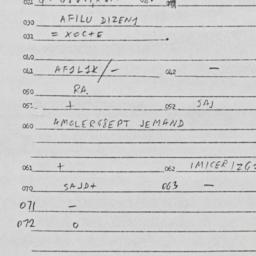 030 AFILU DIZEN1
032 = XOC+E .
040
041 AF1L1K/- 042 -
050 RA.
051 + 052 SAJ
060 GMOLERGSEPT JEMAND
061 + 062 IMICER/ZG
070 SAJD+ 063 -
071 -
072 0